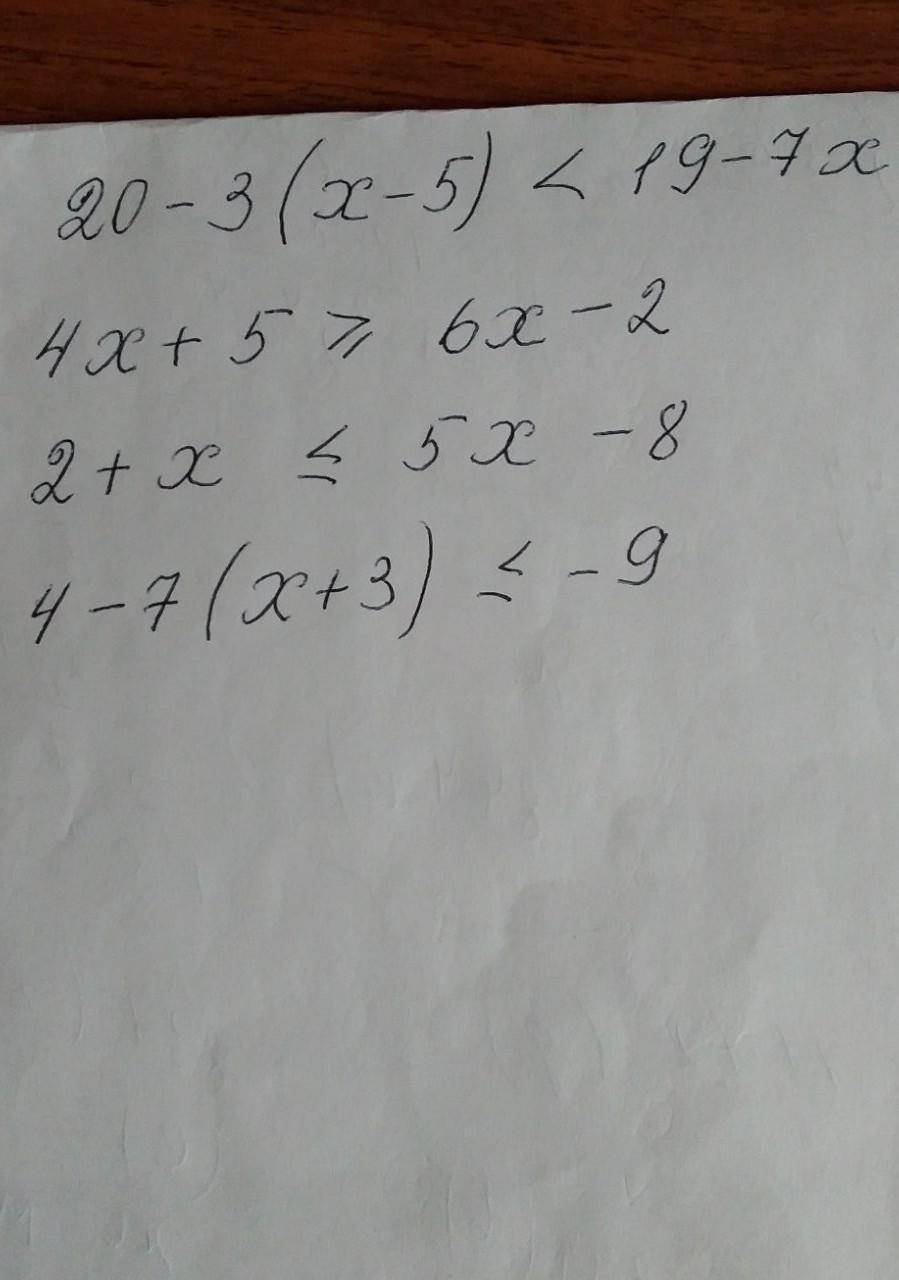 20 - 3 (x - 5) < 19 - 7x
4x + 5 ⩾ 6x - 2
2 + x ≤ 5x - 8
4 - 7 (x + 3) ≤ - 9